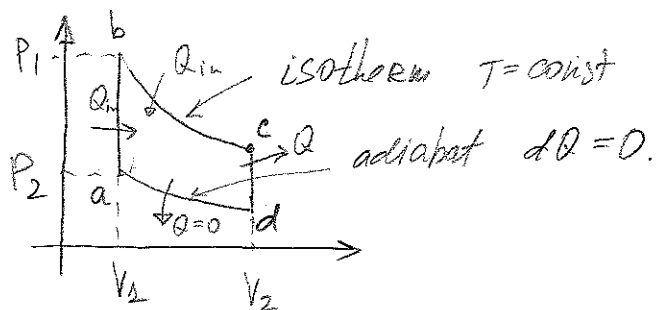 P₁
b
Q in
isotherm T = const
Q in
c
Q
adiabat dQ = 0.
P₂
a
Q=0
d
V₁
V₂